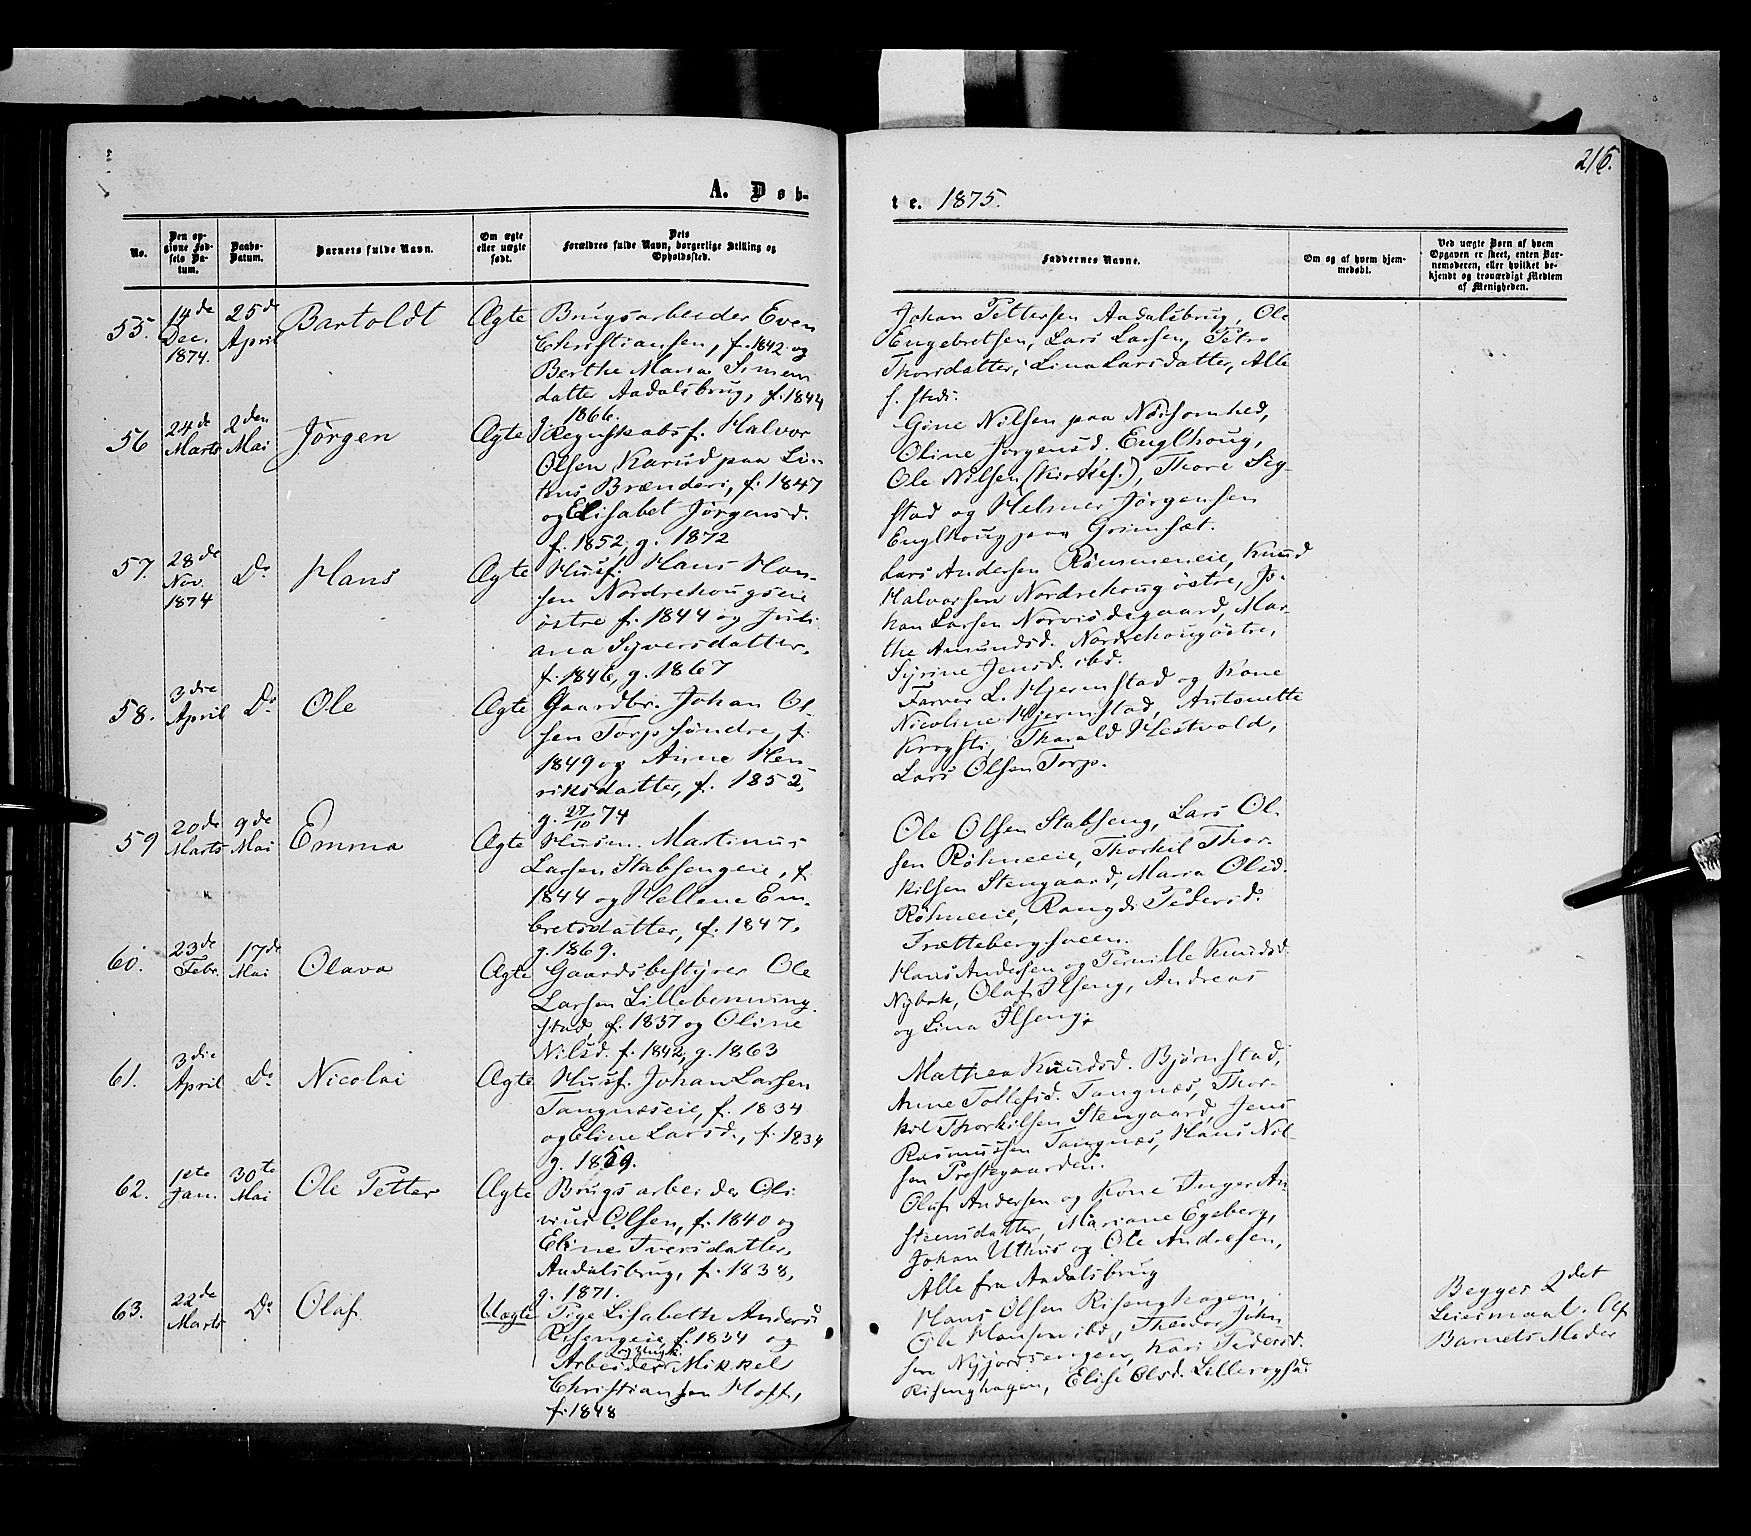 216.
A. Døb-
te. 1875.
No.
Den op-
givne Fød-
sels Da-
tum.
Daabs-
Datum.
Barnets fulde Navn.
Om ægte
eller uægte
født.
Dets
Forældres fulde Navn, borgerlige Stilling og
Opholdssted.
Faddernes Navne.
Om og af hvem hjem-
medøbt.
Ved uægte Børn af hvem
Opgaven er skeet, enten Bar-
nemoderen, eller hvilket be-
kjendt og troværdigt Medlem
af Menigheden.
55.
14de
Dec.
1874.
25de
April
Bartoldt
Ægte
Brugsarbeider Even
Christiansen, f. 1842 og
Berthe Maria Simens
datter Aadalsbrug, f. 1844
g. 1866.
Johan Pettersen Aadalsbrug, Ole
Engebretsen, Lars Larsen, Petro
Thorsdatter, Lina Larsdatter, Alle
s. steds.
56
24de
Marts
2den
Mai
Jørgen
Ægte
Regnskabsf. Halvor
Olsen Karud paa Li-
hus Brænderi, f. 1847
og Elisabet Jørgensd.
f. 1852, g. 1872
Gine Nilsen paa Næsomhed,
Oline Jørgensd. Englhoug,
Ole Nilsen, Thore Sig-
stad og Helmer Jørgensen
Englhoug paa Grimsæt.
57.
28de
Nov.
1874
Do
Hans
Ægte
Husf. Hans Han-
sen Nordrehougseie
østre f. 1844 og Juli
ana Syversdatter,
f. 1846, g. 1867
Lars Andersen Rømmeneie, Knud
Halvorsen Nordrehoug østre, Jo-
han Larsen Norvisdegaard, Mar-
the Amundsd. Nordrehoug østre,
Syrine Jensd. ibd.
58.
3die
April
Do
Ole
Ægte
Gaardbr. Johan Ol-
sen Torp søndre, f.
1849 og Anne Hen-
riksdatter, f. 1852,
g. 27/10 74
Farver L. Hjermstad og Kone
Nicoline Hjermstad, Antonette
Krogsti, Tharald Hestvold,
Lars Olsen Torp.
59
20de
Marts
9de
Mai
Emma
Ægte
Husm. Martinus
Larsen Stabsengeie, f.
1844 og Hellene Em-
bretsdatter, f. 1847,
g. 1869.
Ole Olsen Stabseng, Lars Ol-
sen Røhneeie, Thorkil Thor-
kilsen Stengaard, Maria Olsd.
Røhneeie, Rangdi Pedersd.
Trættebergsveen.
60.
23de
Febr.
17de
Mai
Olava
Ægte
Gaardsbestyrer Ole
Larsen Lillebenning
stad, f. 1837 og Oline
Nilsd. f. 1842, g. 1863
Hans Andersen og Pernille Knudsd.
Nybak, Olaf Ilseng, Andreas
og Lina Ilseng.
61.
3die
April
Do
Nicolai
Ægte
Husf. Johan Larsen
Tangnæseie, f. 1834
og Eline Larsd., f. 1834
g. 1859.
Mathea Knudsd. Bjørnstad,
Anne Tollefsd. Tangnæs, Thor-
kil Thorkilsen Stengaard, Jens
Rasmussen Tangnæs, Hans Nil-
sen Prestegaarden.
62.
1ste
Jan.
30te
Mai
Ole Petter
Ægte
Brugsarbeider Oli-
vius Olsen, f. 1840 og
Eline Iversdatter,
Aadalsbrug, f. 1838,
g. 1871.
Olaf Andersen og Kone Inger An-
steensdatter, Mariane Egeberg,
Johan Uthus og Ole Andresen,
Alle fra Aadalsbrug
63.
22de
Marts
Do
Olaf
Uægte
Pige Lisabeth Andersd
Risengeie, f. 1834 og
Arbeider Mikkel
Christiansen Hoff,
f. 1848
Hans Olsen Risenghagen,
Ole Hansen ibd, Theodor Johan
sen Nyjordsengen, Kari Pedersd.
Risenghagen, Elise Olsd.
Begges 2det
Leiermaal. Af
Barnets Moder